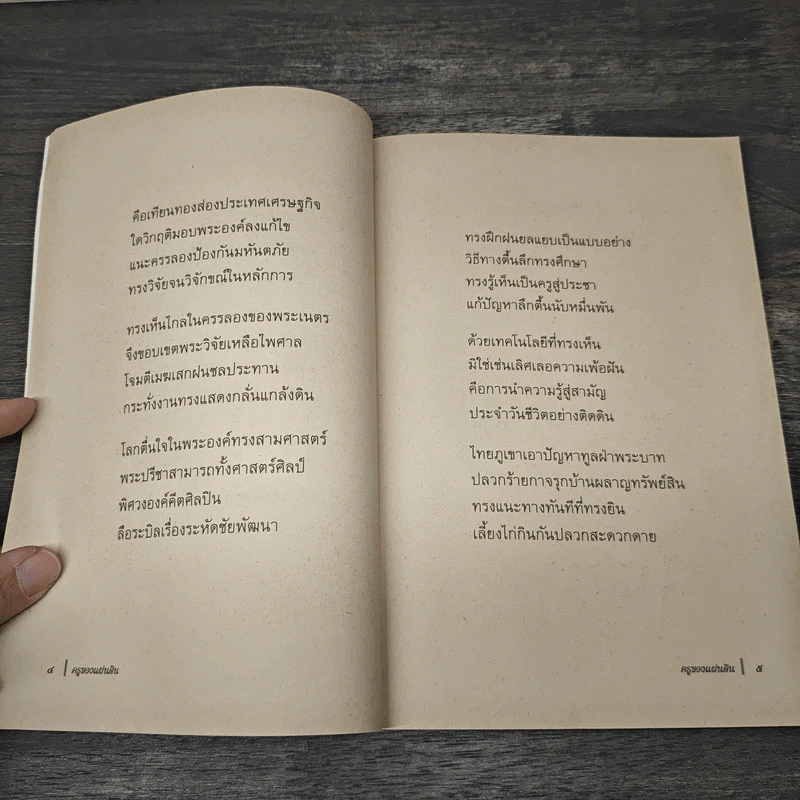 คือเทียนทองส่องประเทศเศรษฐกิจ
ใดวิกฤติมอบพระองค์ลงแก้ไข
แนะครรลองป้องกันมหันตภัย
ทรงวิจัยจนวิจักขณ์ในหลักการ
ทรงเห็นไกลในครรลองของพระเนตร
จึงขอบเขตพระวิจัยเหลือไพศาล
โจมตีเมฆเสกฝนชลประทาน
กระทั่งงานทรงแสดงกลั่นแกล้งดิน
โลกตื่นใจในพระองค์ทรงสามศาสตร์
พระปรีชาสามารถทั้งศาสตร์ศิลป์
พิศวงองค์คีตศิลปิน
ลือระบิลเรื่องระหัดชัยพัฒนา
๔ | ครูของแผ่นดิน
ทรงฝึกฝนยลแยบเป็นแบบอย่าง
วิธีทางตื้นลึกทรงศึกษา
ทรงรู้เห็นเป็นครูสู่ประชา
แก้ปัญหาลึกตื้นนับหมื่นพัน
ด้วยเทคโนโลยีที่ทรงเห็น
มิใช่เช่นเลิศเลอความเพ้อฝัน
คือการนำความรู้สู่สามัญ
ประจำวันชีวิตอย่างติดดิน
ไทยภูเขาเอาปัญหาทูลฝ่าพระบาท
ปลวกร้ายกาจรุกบ้านผลาญทรัพย์สิน
ทรงแนะทางทันทีที่ทรงยิน
เลี้ยงไก่กินกันปลวกสะดวกดาย
ครูของแผ่นดิน | ๕